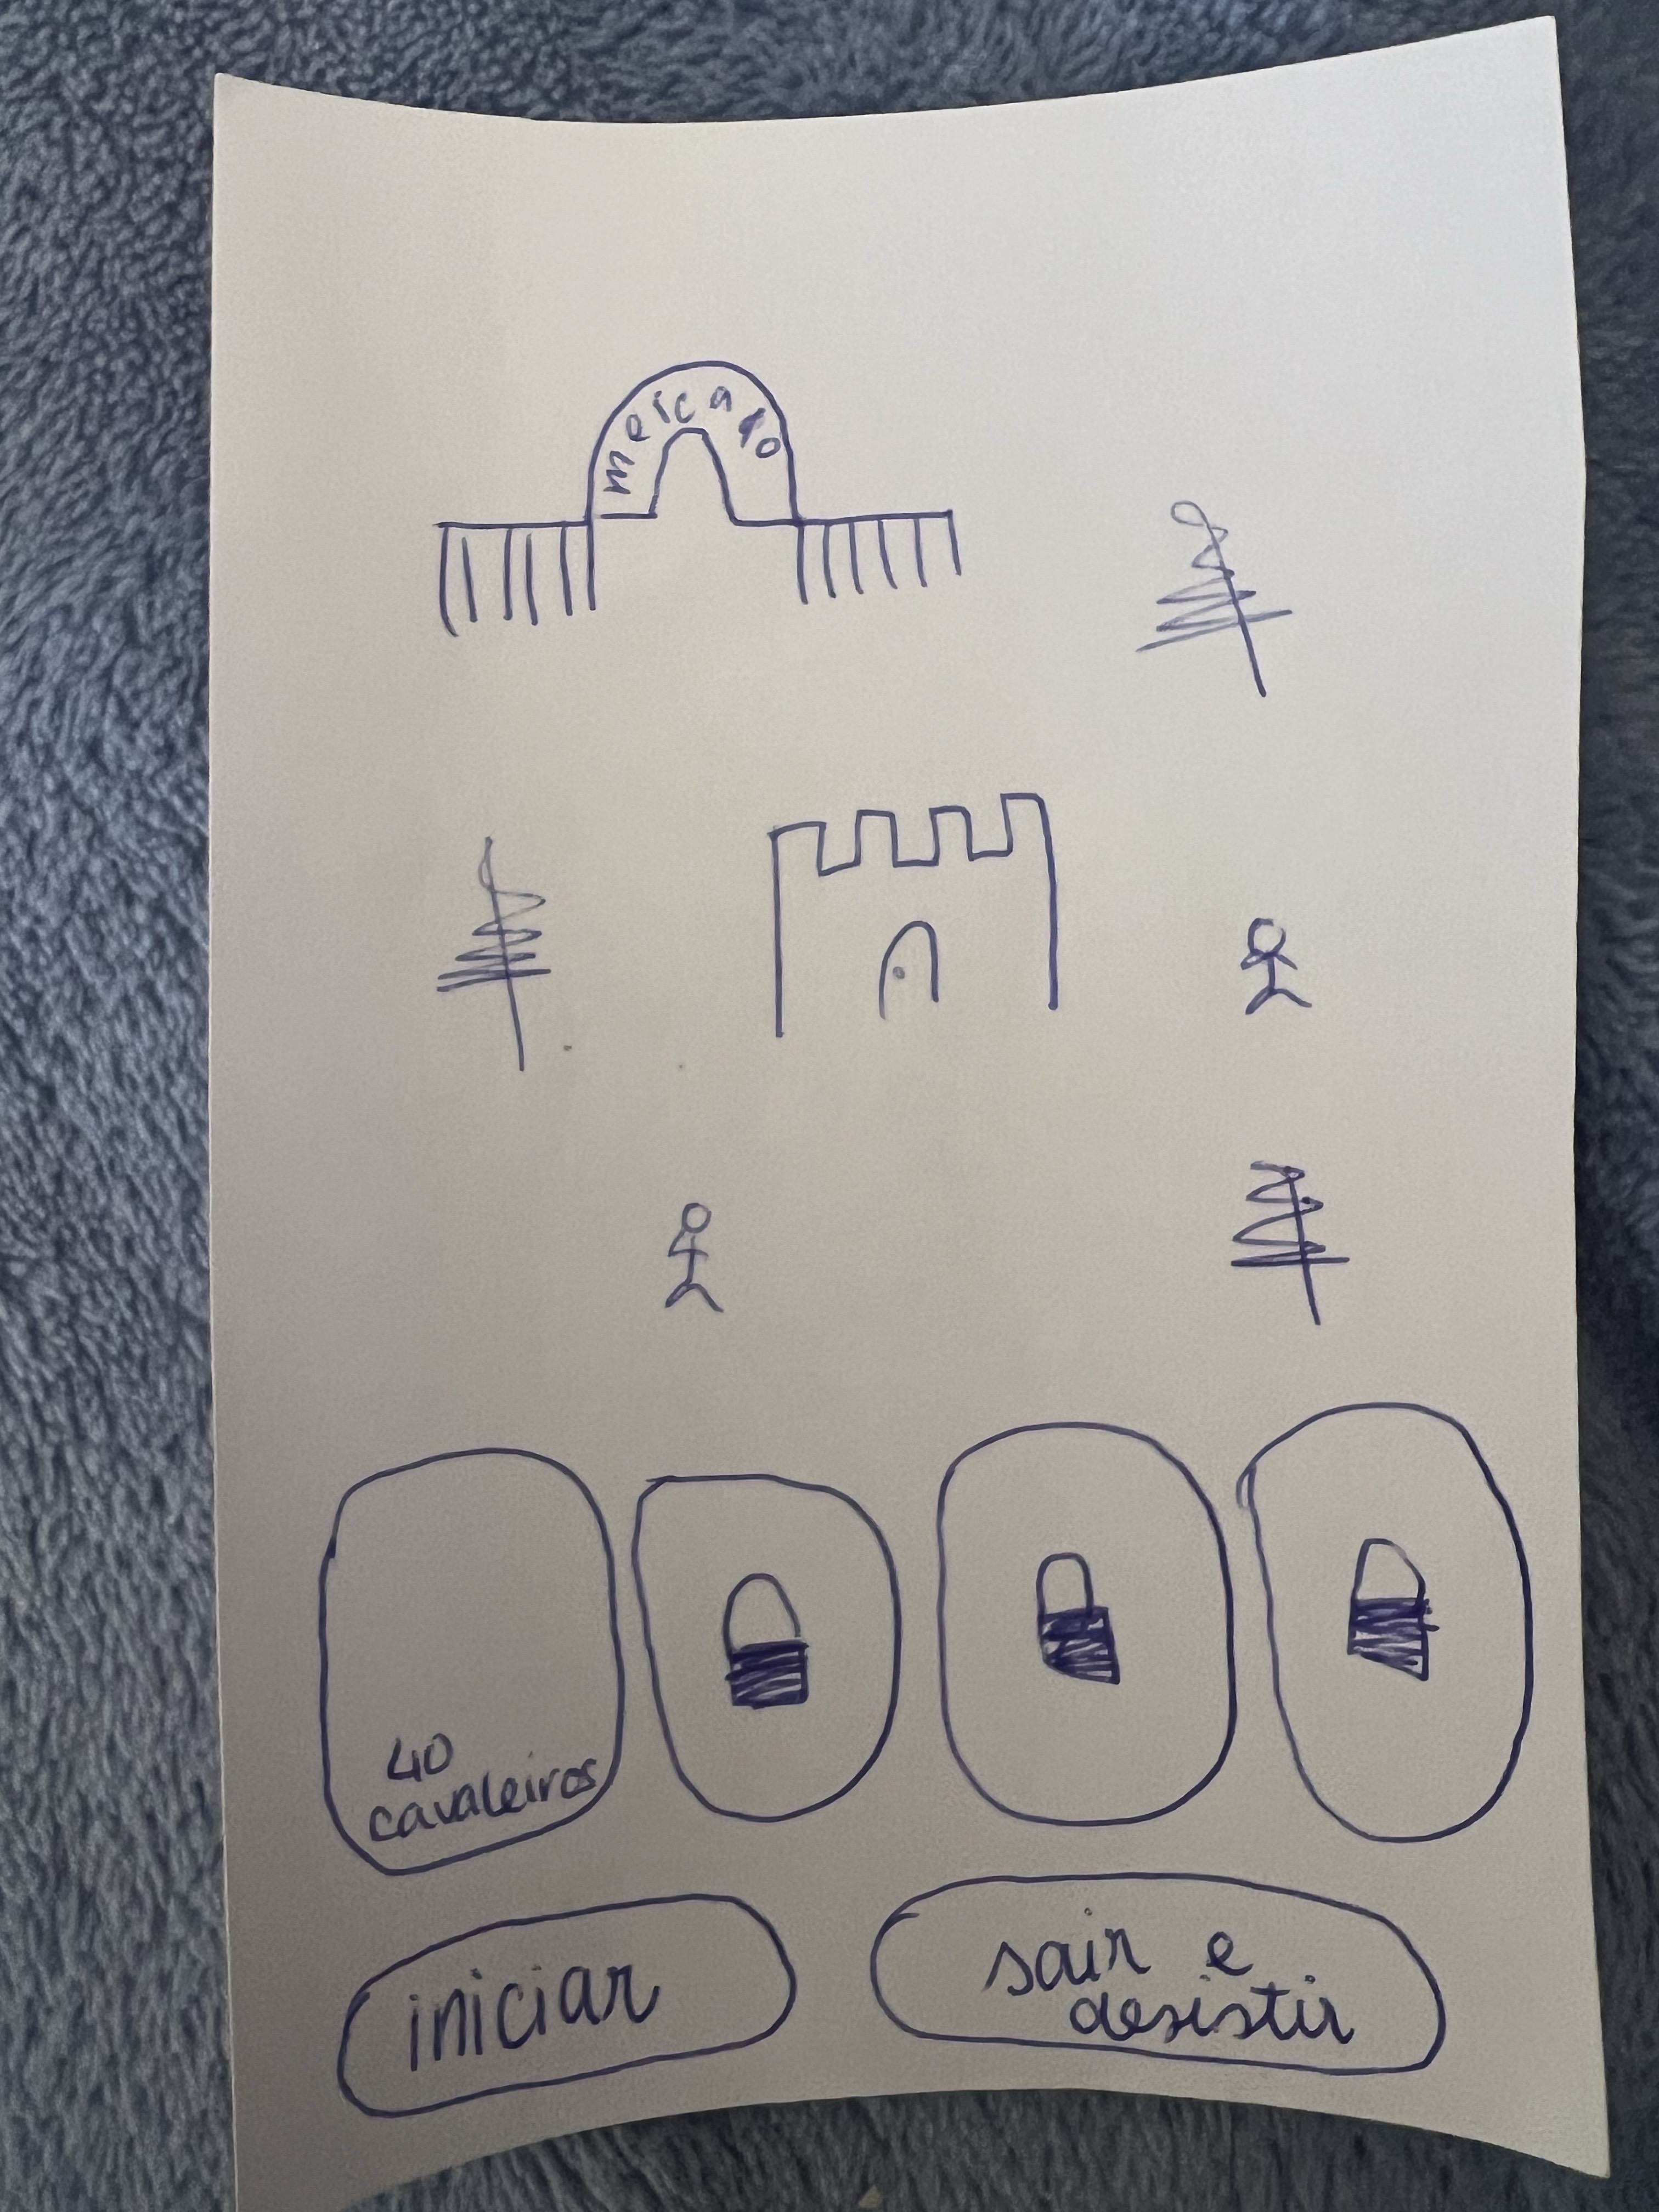 mercado
40
cavaleiros
iniciar
sair e
desistir